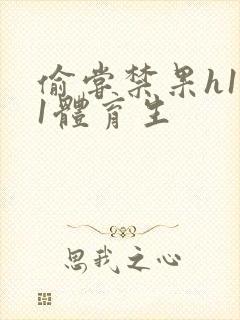 偷嘗禁果h1
1體育生
思我之心